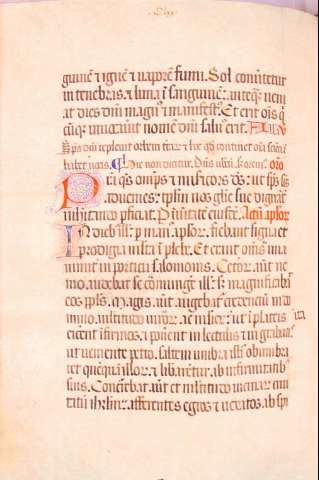 guinē ⁊ ignē ⁊ vaporē fumi. Sol conv̄tetur
in tenebras. ⁊ luna ī sanguinē: anteq̄ȝ veni
at dies dn̄i magn᷒ ⁊ manifest᷒. Et erit oīs q
cūqȝ invocaūit nomē dn̄i salv᷒ erit. All'a
Sp̄s dn̄i replevit orbem terrar̄ ⁊ hoc qd̄ continet oīa scienā
habet vocis. Hic non dicitur. Dn̄s vob̄. or̄o
P̄sta q̄s om̄ps ⁊ misericors d̄s: ut sp̄s sc̄s
adveniēs: templū nos glīe sue dignāt᷒
inhabitando p̄ficiat. P unitate eiusdē. Actuū apl̄or
In dieb᷒ ill᷒. p man᷒ apl̄or̄. fiebant signa ⁊
prodigia m̄lta ī plebe. Et erant om̄s una
nimit̄ in porticu salomonis. Ceteror̄ aūt ne
mo audebat se coniungē ill᷒: s᷒ magnificabāt
eos ppl̄s. Magis aūt augebat᷒ credentiū in dn̄o
multitudo viror̄ ac mulier̄: ita ut ī plateis
eicerēt īfirmos. ⁊ ponerēt in lectulis ⁊ in grabatis:
ut veniente petro. saltem umbra illi᷒ obumbra
ret quēqȝ illor̄. ⁊ libarent᷒ ab infirmitatibȝ
suis. Concurrebat aūt ⁊ m̄ltitudo vicinar̄ civi
tatū ihrlm̄: afferentes egros ⁊ vexatos. ab sp̄i